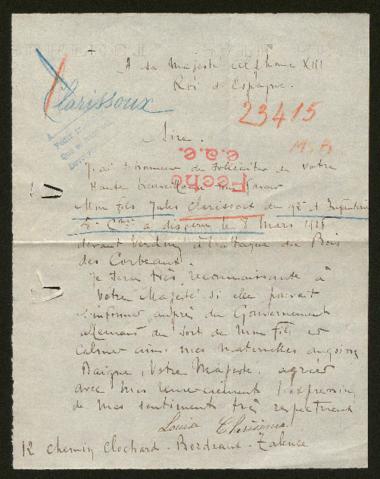 A sa Majesté Alphonse XIII
Roi d'Espagne.
Clarissoux
23415
Sire.
M. B
J'ai l'honneur de solliciter de votre
Haute bienveillance
Fecho
e.a.e.
Mon fils Jules Clarissoux du 92e d'Infanterie
5e Cie a disparu le 8 Mars 1916
devant Verdun à l'attaque du Bois
des Corbeaux.
Je serai très reconnaissante à
Votre Majesté si elle pouvait
s'informer auprès du Gouvernement
allemand du sort de mon fils et
calmer ainsi mes maternelles angoisses
Daigne, Votre Majesté, agréer
avec mes remerciements l'expression
de mes sentiments très respectueux
Louisa
12 Chemin Clochard - Bordeaux - Talence